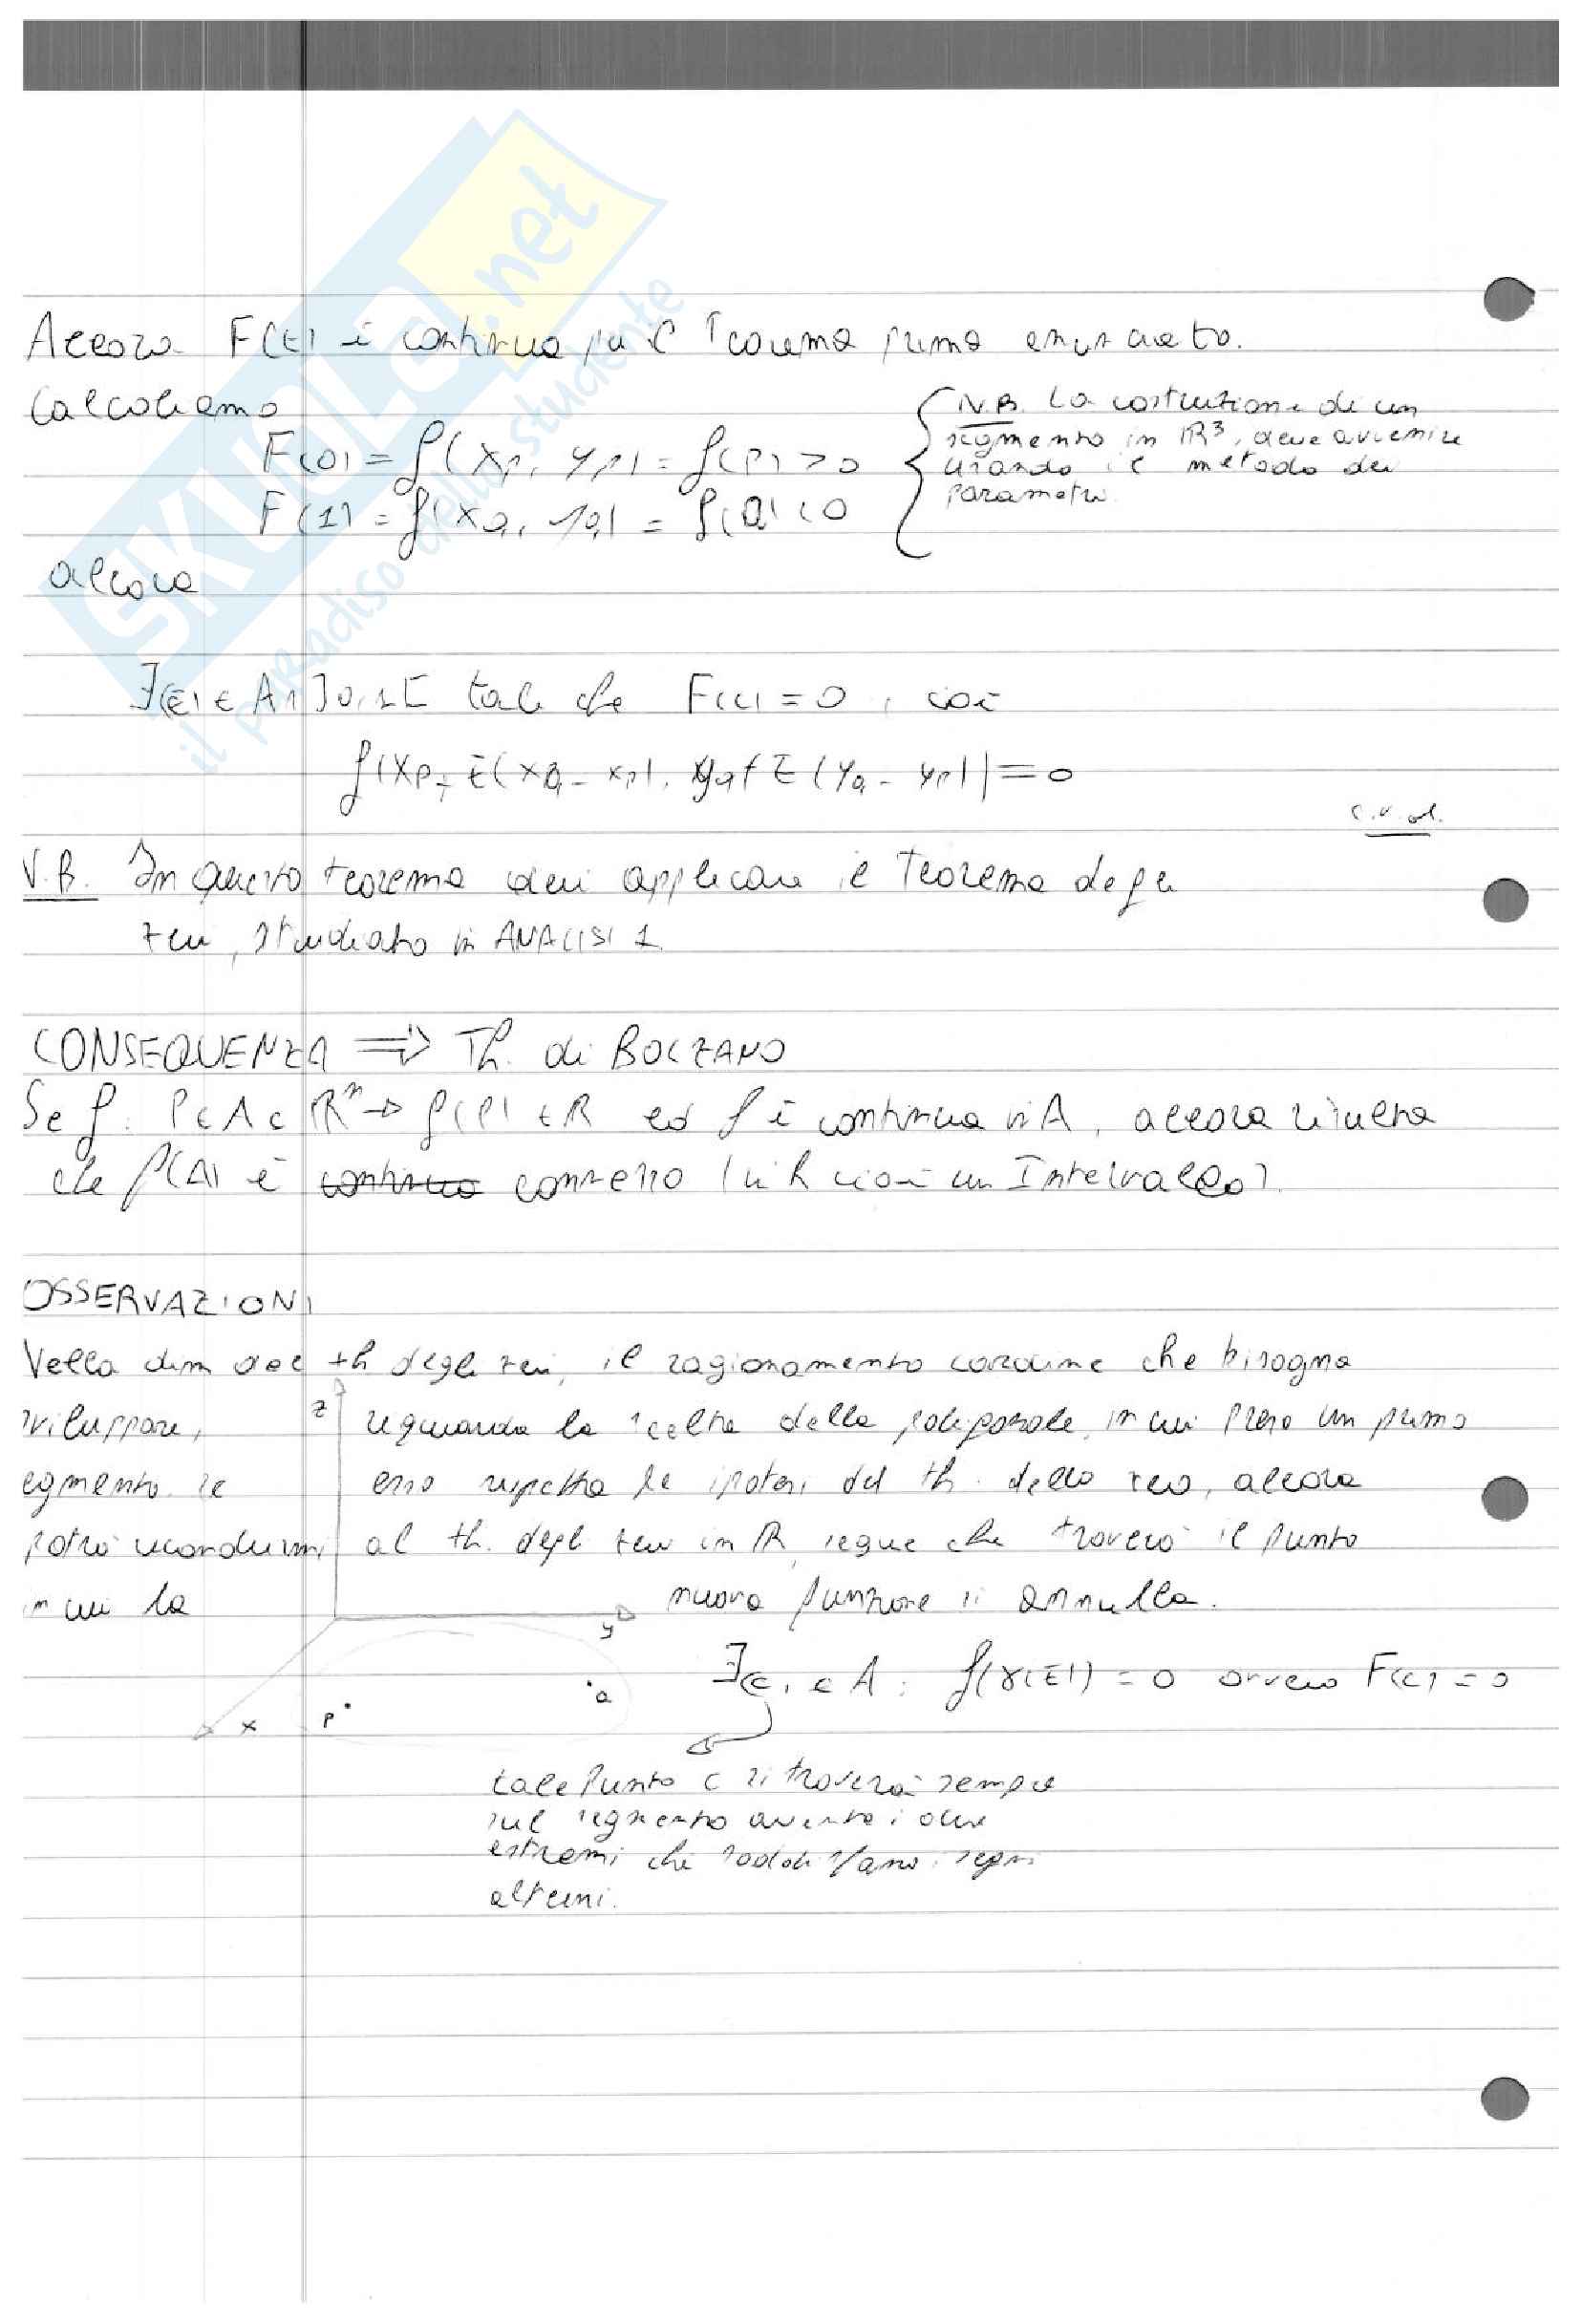 Allora F(t) è continua per il Teorema prima enunciato.
Calcoliamo
F(0) = f(xP, yP) = f(P) > 0
F(1) = f(xQ, yQ) = f(Q) < 0
N.B. La costruzione di un
segmento in R³, deve avvenire
usando il metodo dei
parametri.
allora
∃ t̄ ∈ ]0,1[ tale che F(c) = 0, cioè
f(xP + t̄(xQ - xP), yP + t̄(yQ - yP)) = 0
c.v.d.
N.B. In questo teorema devi applicare il Teorema degli
zeri, studiato in ANALISI 1
CONSEQUENZA ⇒ Th. di BOLZANO
Se f: P ∈ A ⊂ Rⁿ → f(P) ∈ R ed f è continua in A, allora risulta
che f(A) è continuo connesso (in R cioè un Intervallo).
OSSERVAZIONI
Nella dim del th degli zeri, il ragionamento cardine che bisogna
sviluppare, riguarda la scelta della poligonale, in cui preso un primo
segmento se esso rispetta le ipotesi del th. dello zero, allora
potrò ricondurmi al th. degli zeri in R, segue che troverò il punto
in cui la nuova funzione si annulla.
z
y
x
P
Q
∃ c ∈ A : f(γ(t̄)) = 0 ovvero F(c) = 0
tale punto c si troverà sempre
sul segmento avente i due
estremi che soddisfano i segni
alterni.
SKUOLA.net
il paradiso dello studente